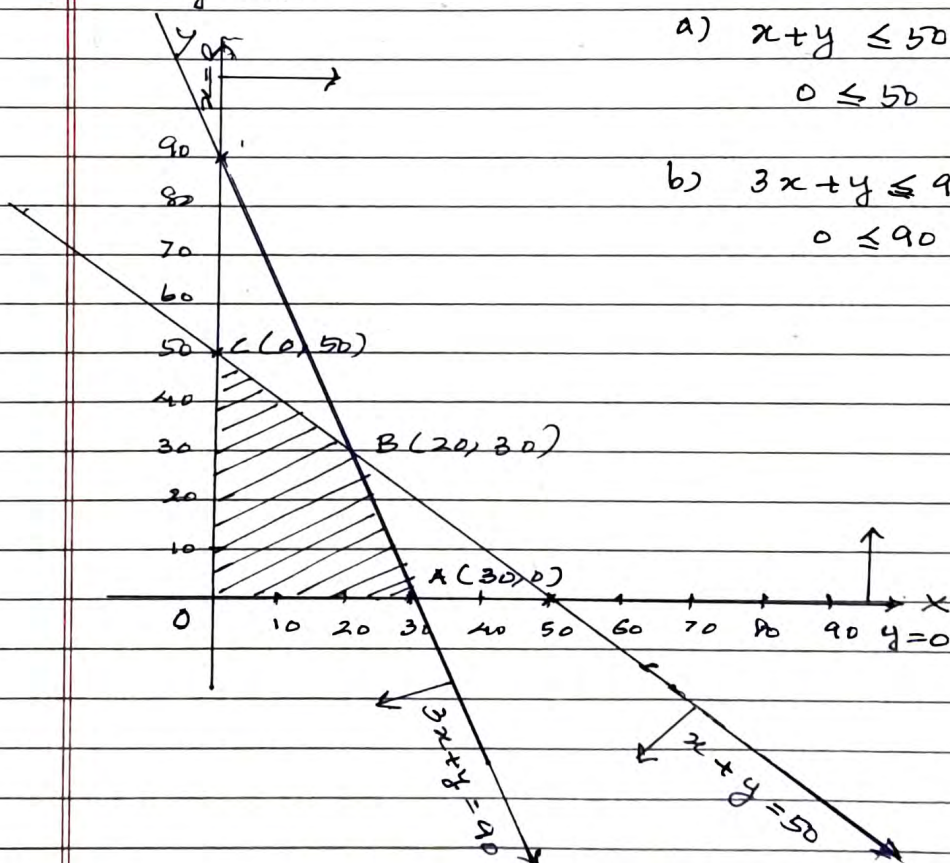 a) x+y ≤ 50
0 ≤ 50
b) 3x+y ≤ 9
0 ≤ 90
y
x=0
90
80
70
60
50 C(0, 50)
40
30 B(20, 30)
20
10 A(30, 0)
0 10 20 30 40 50 60 70 80 90 X
y=0
3x+y=90
x+y=50